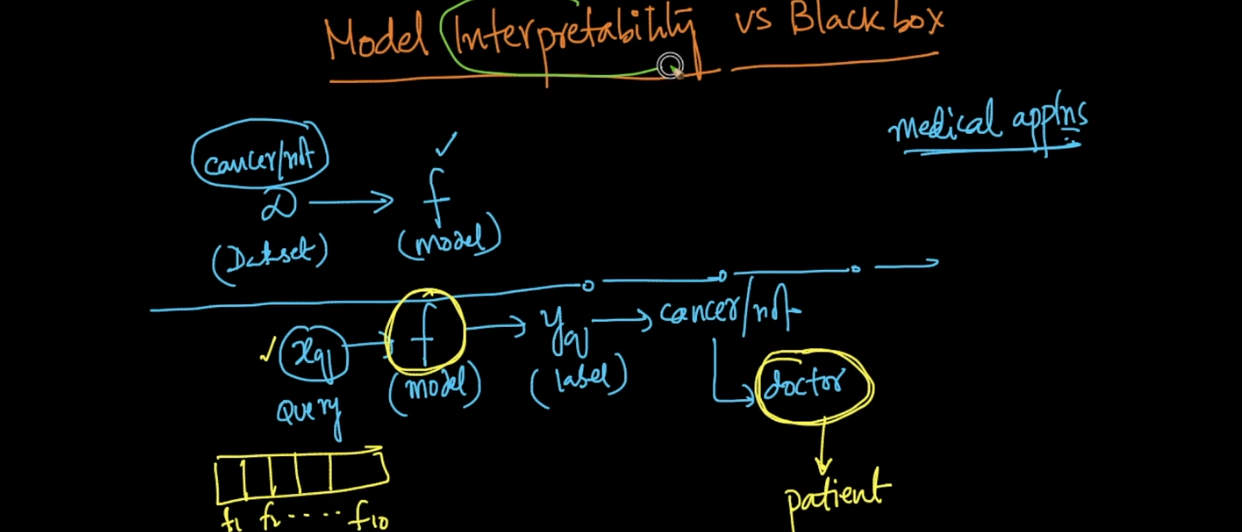 Model Interpretability vs Blackbox
medical applns
cancer/not
D → f
(Dataset) (model)
xq → f → yq → cancer/not
Query (model) (label) doctor
f1 f2 ..... f10
patient